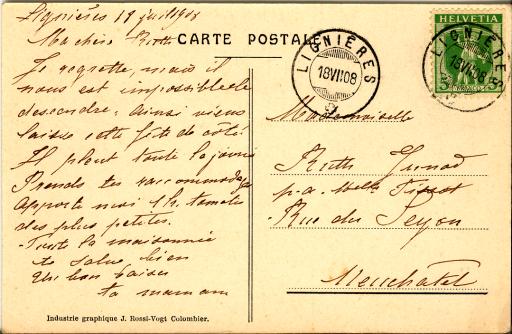 Lignières 18 juil 1908
Ma chère Ruth
Je regrette, mais il
nous est impossible de
descendre; ainsi viens
laisse cette fête de côté.
Il pleut toute la journée
Prends tes raccommodages
Apporte moi 1 h. tomates
des plus petites.
Toute la maisonnée
te salue bien
Un bon baiser
ta maman
CARTE POSTALE
LIGNIÈRES
18 VII 08
HELVETIA
5
LIGNIÈRES
18 VII 08
Mademoiselle
Ruth Junod
p. a. Mlle
Rue du Seyon
Neuchâtel
Industrie graphique J. Rossi-Vogt Colombier.